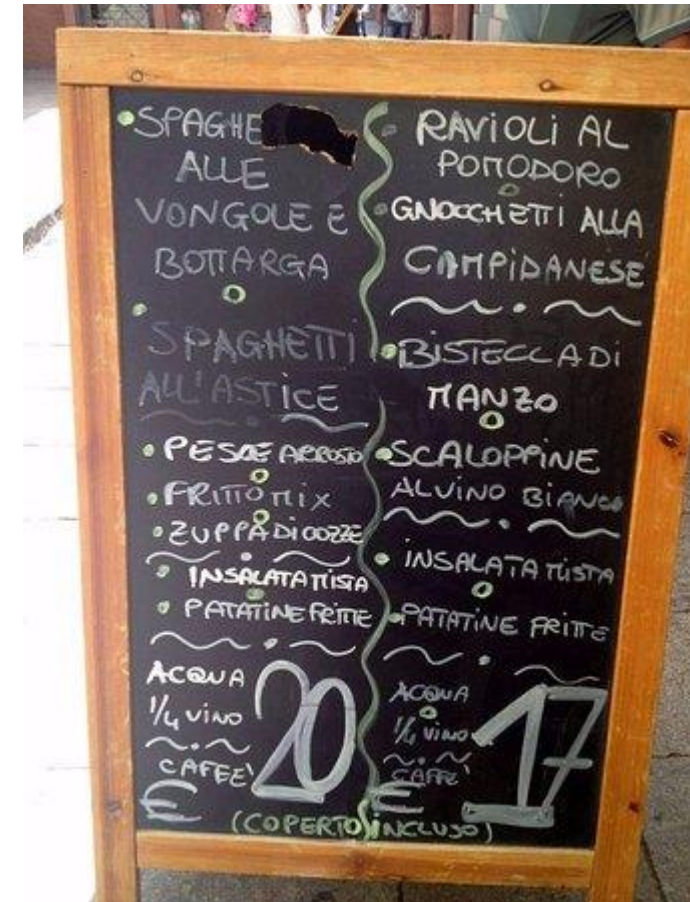 SPAGHE
ALLE
VONGOLE E
BOTTARGA
SPAGHETTI
ALL'ASTICE
PESCE ARROSTO
FRITTO MIX
ZUPPA DI COZZE
INSALATA MISTA
PATATINE FRITTE
ACQUA
1/4 VINO
CAFFE'
€ 20
RAVIOLI AL
POMODORO
GNOCCHETTI ALLA
CAMPIDANESE
BISTECCA DI
MANZO
SCALOPPINE
AL VINO BIANCO
INSALATA MISTA
PATATINE FRITTE
ACQUA
1/4 VINO
CAFFE'
€ 17
(COPERTO INCLUSO)